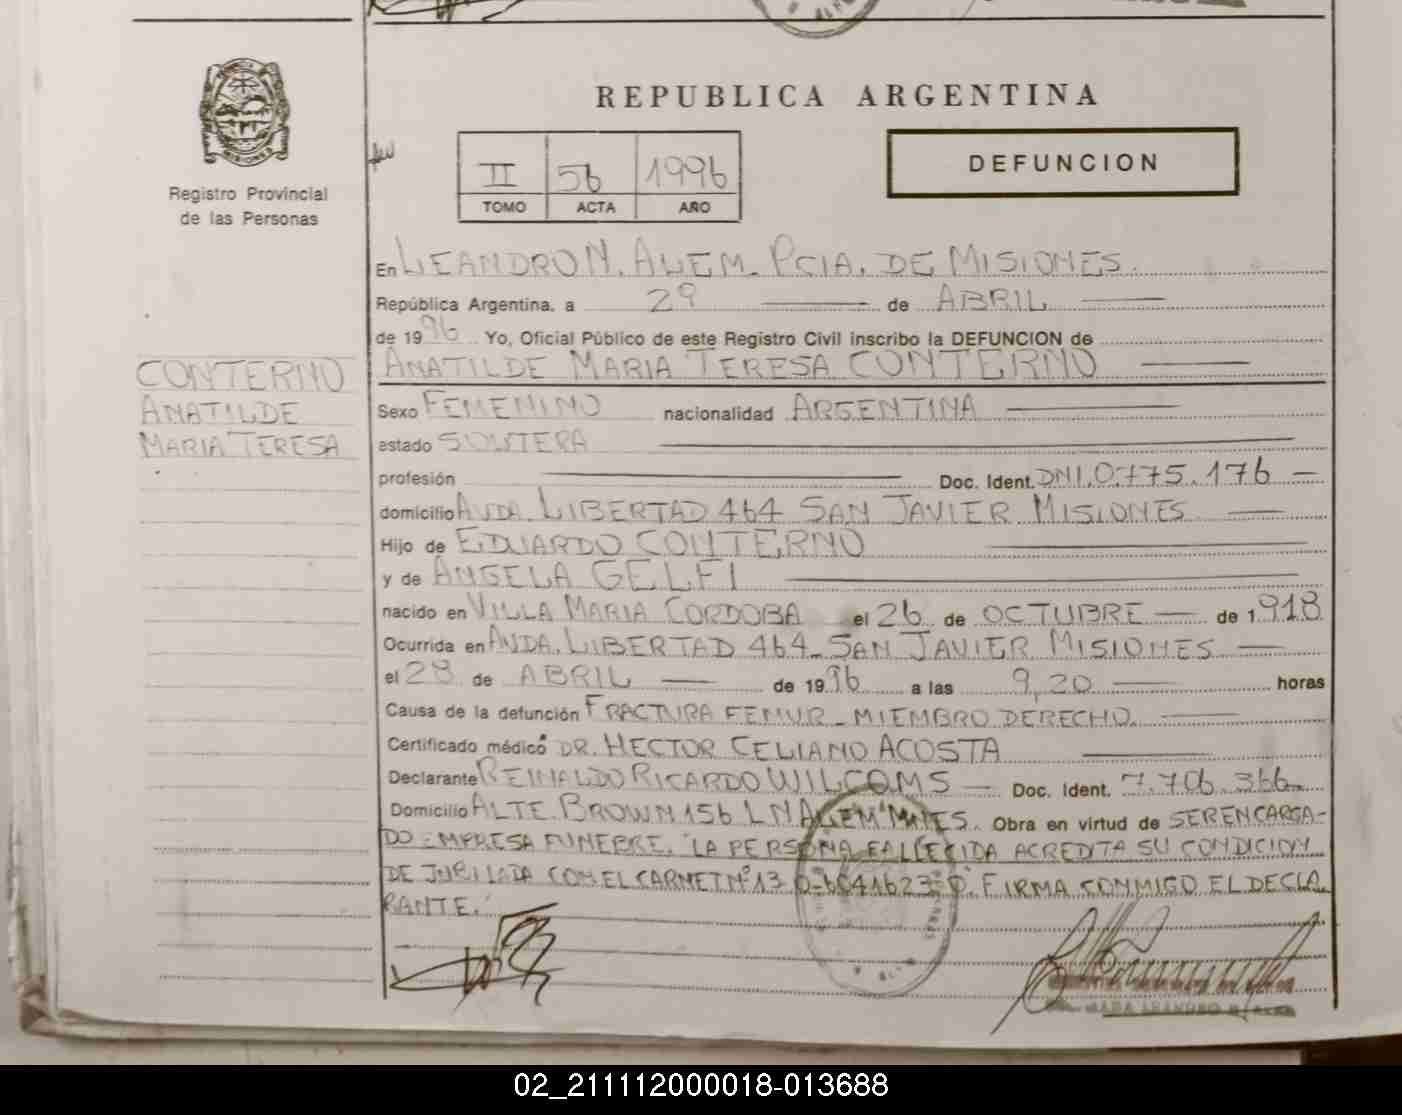 REPUBLICA ARGENTINA
Registro Provincial
de las Personas
II 56 1996
TOMO ACTA AÑO
DEFUNCION
En LEANDRO N. ALEM. PCIA. DE MISIONES.
República Argentina, a 29 de ABRIL
de 1996 Yo, Oficial Público de este Registro Civil inscribo la DEFUNCION de
ANATILDE MARIA TERESA CONTERNO
CONTERNO
ANATILDE
MARIA TERESA
Sexo FEMENINO nacionalidad ARGENTINA
estado SOLTERA
profesión Doc. Ident. DNI.0.775.176
domicilio AVDA. LIBERTAD 464 SAN JAVIER MISIONES
Hijo de EDUARDO CONTERNO
y de ANGELA GELFI
nacido en VILLA MARIA CORDOBA el 26 de OCTUBRE de 1918
Ocurrida en AVDA. LIBERTAD 464 SAN JAVIER MISIONES
el 28 de ABRIL de 1996 a las 9,20 horas
Causa de la defunción FRACTURA FEMUR - MIEMBRO DERECHO.
Certificado médico DR. HECTOR CELIANO ACOSTA
Declarante REINALDO RICARDO WILCOMS Doc. Ident. 7.706.366
Domicilio ALTE. BROWN 156 L N ALEM MNES. Obra en virtud de SER ENCARGA-
DO EMPRESA FUNEBRE. "LA PERSONA FALLECIDA ACREDITA SU CONDICION
DE JUBILADA CON EL CARNET Nº 13 0-6041623-0". FIRMA CONMIGO EL DECLA
RANTE.
02_211112000018-013688